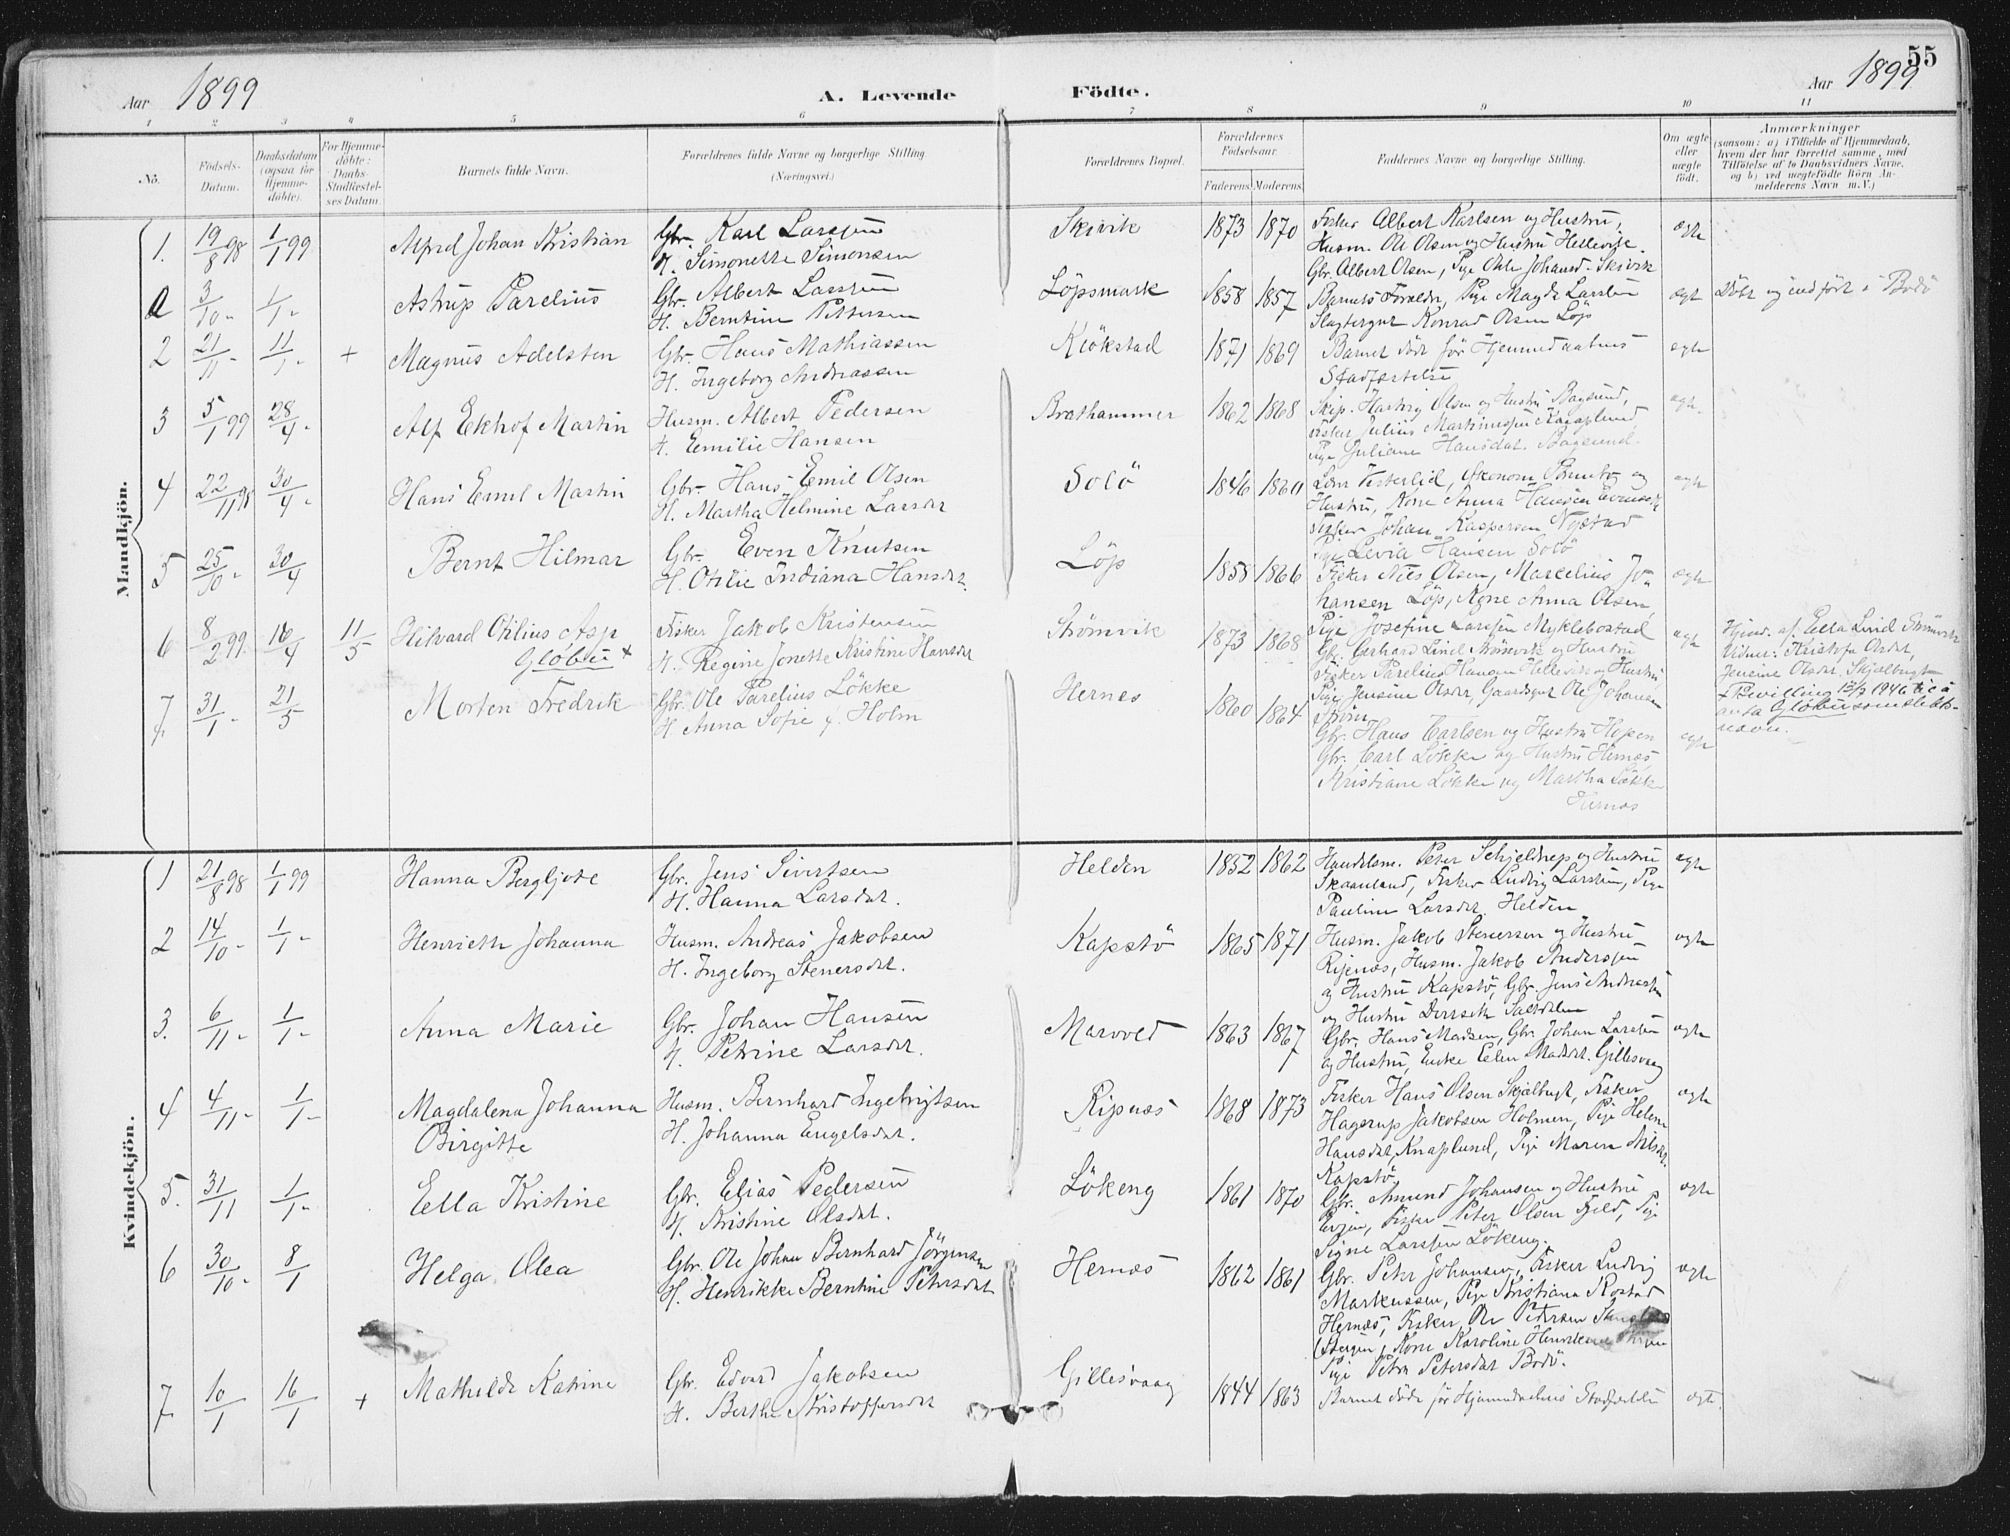 55
Aar 1899
A. Levende Födte.
Aar 1899
1 2 3 4 5 6 7 8 9 10 11
No.
Födsels-Datum.
Daabsdatum (ogsaa for Hjemme-döbte).
For Hjemme-döbte: Daabs-Stadfæstel-ses Datum.
Barnets fulde Navn.
Forældrenes fulde Navne og borgerlige Stilling.
(Næringsvei.)
Forældrenes Bopæl.
Forældrenes Födselsaar.
Faderens. Moderens.
Faddernes Navne og borgerlige Stilling.
Om ægte eller uægte födt.
Anmærkninger
(saasom: a) i Tilfælde af Hjemmedaab,
hvem der har forrettet samme, med
Tilföielse af to Daabsvidners Navne,
og b) ved uægtefödte Börn An-
melderens Navn m. V.)
Mandkjön.
1. 19/8 98 1/1 99 Alfred Johan Kristian
Gbr. Karl Larssen
H. Simonette Simonsen
Skivik 1873 1870
Fisker Albert Karlsen og Hustru,
Husm. Ole Olsen og Hustru Hellevik.
Gbr. Albert Olsen, Pige Johansd. Skivik
ægte
a 3/10 - 1/1 - Astrup Parelius
Gbr. Albert Larssen
H. Berntine Pettersen
Löpsmark 1858 1857
Barnets Forældre, Pige Magda Larssen
Slagtergut Konrad Olsen Löp
ægte Döbt og indfört i Bodö
2 21/11 - 11/1 - + Magnus Adelsten
Gbr. Hans Mathiassen
H. Ingeborg Andreassen
Klökstad 1871 1869
Barnet död för Hjemmedaabens
Stadfæstelse
ægte
3 5/1 99 28/4 - Alf Ekhof Martin
Husm. Albert Pedersen
H. Emilie Hansen
Brathammer 1862 1868
Skip. Hartvig Olsen og Hustru Bagsund,
Fisker Julius Martinussen Knaplund,
Pige Juliane Hansdat. Bagsund.
ægte
4 22/11 98 30/4 - Hans Emil Martin
Gbr. Hans Emil Olsen
H. Martha Helmine Larsdt
Solö 1846 1860
Lærer Vesterlid, Økonom og
Hustru, Kone Anna Hansen
Fisker Johan Kaspersen Nystad
Pige Levia Hansen Solö
ægte
5 25/10 - 30/4 Bernt Hilmar
Gbr. Even Knutsen
H. Otilie Indiana Hansdt.
Löp 1858 1866
Fisker Nils Olsen, Marcelius Jo-
hansen Löp, Kone Anna Olsen,
Pige Josefine Larssen Myklebostad
ægte
6 8/2 99 16/4 11/5 Hilvard Otilius Asp
Globen +
Fisker Jakob Kristensen
H. Regine Jonette Kristine Hansdt
Strömvik 1873 1868
Gbr. Gerhard Lind Strömvik og Hustru
Fisker Parelius Hansen Hellevik og Hustru,
Pige Jensine Olsdt, Gaardsgut Ole Johansen
Ström
ægte
Hjmd. af Ella Lind Strömvik
Vidner: Kristofa Olsdt,
Jensine Olsdt. Skjælbugten
+ Bevilling 12/3 1946 til å
anta Globen som slekts-
navn.
7. 31/1 - 21/5 Morten Fredrik
Gbr. Ole Parelius Lökke
H. Anna Sofie f. Holm
Hernes 1860 1864
Gbr. Hans Carlsen og Hustru Hopen
Gbr. Carl Lökke og Hustru Hernæs
Kristiane Lökke og Martha Lökke
Hernæs
ægte
Kvindekjön.
1 21/8 98 1/1 99 Hanna Bergljote
Gbr. Jens Sivertsen
H. Hanna Larsdat.
Helden 1852 1862
Handelsm. Peter Schjeldrup og Hustru
Skaanland, Fisker Ludvig Larssen, Pige
Pauline Larsdt. Helden
ægte
2 14/10 - 1/1 - Henriette Johanna
Husm. Andreas Jakobsen
H. Ingeborg Stenersdat.
Kapstö 1865 1871
Husm. Jakob Stenersen og Hustru
Ripnæs, Husm. Jakob Anderssen
og Hustru Kapstö, Gbr. Jens Andreassen
og Hustru Saltdalen
ægte
3. 6/11 - 1/1 - Anna Marie
Gbr. Johan Hansen
H. Petrine Larsdat.
Marvold 1863 1867
Gbr. Hans Madsen, Gbr. Johan Larssen
og Hustru, Enke Ellen Madsdt. Gillesvaag
ægte
4 4/11 - 1/1 - Magdalena Johanna
Birgitte
Husm. Bernhard Ingebrigtsen
H. Johanna Engelsdat.
Ripnæs 1868 1873
Fisker Hans Olsen Skjælbugt, Fisker
Hagerup Jakobsen Holmen, Pige Helene
Hansdat, Knaplund, Pige Maren Nilsdt.
Kapstö
ægte
5. 31/11 1/1 - Ella Kristine
Gbr. Elias Pedersen
H. Kristine Olsdat.
Lökeng 1861 1870
Gbr. Amund Johansen og Hustru
Evjen, Fisker Peter Olsen Fjeld, Pige
Signe Larssen Lökeng.
ægte
6 30/10 - 8/1 Helga Olea
Gbr. Ole Johan Bernhard Jörgensen
H. Henrikke Berntine Petersdat
Hernæs 1862 1861
Gbr. Peter Johansen, Fisker Ludvig
Markussen, Pige Kristiana Rostad
Hernæs, Fisker Ole Petersen
Kone Karoline
Pige Petra Petersdat Bodö.
ægte
7. 10/1 16/1 + Mathilde Katrine
Gbr. Edvard Jakobsen
H. Berthe Kristoffersdat
Gillesvaag 1844 1863
Barnet döde för Hjemmedaabens Stadfæstelse
ægte